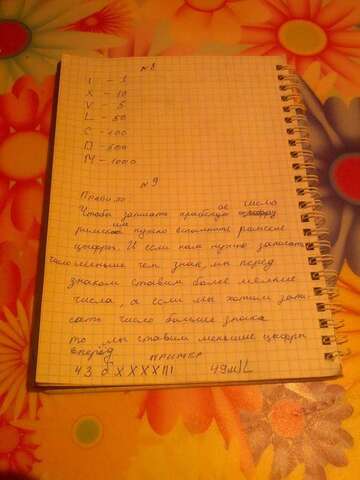 №8
I - 1
X - 10
V - 5
L - 50
C - 100
D - 500
M - 1000
№9
Правило
Чтобы записать арабскую ое число
римской им нужно вспомнить римские
цифры. И если нам нужно записать
число меньше чем знак, мы перед
знаком ставим более мелкие
числа, а если мы хотим запи-
сать число больше знака
то мы ставим меньшие цифры
вперёд
пример
43 XXXXIII 49